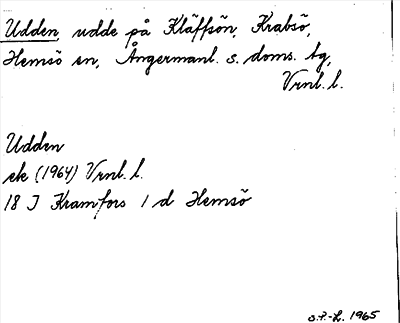 Udden, udde på Kläffsön, Krabsö,
Hemsö sn, Ångermanl. s. doms. tg,
Vrnl. l.
Udden
ek (1964) Vrnl. l.
18 J Kramfors 1 d Hemsö
O.P.-L. 1965